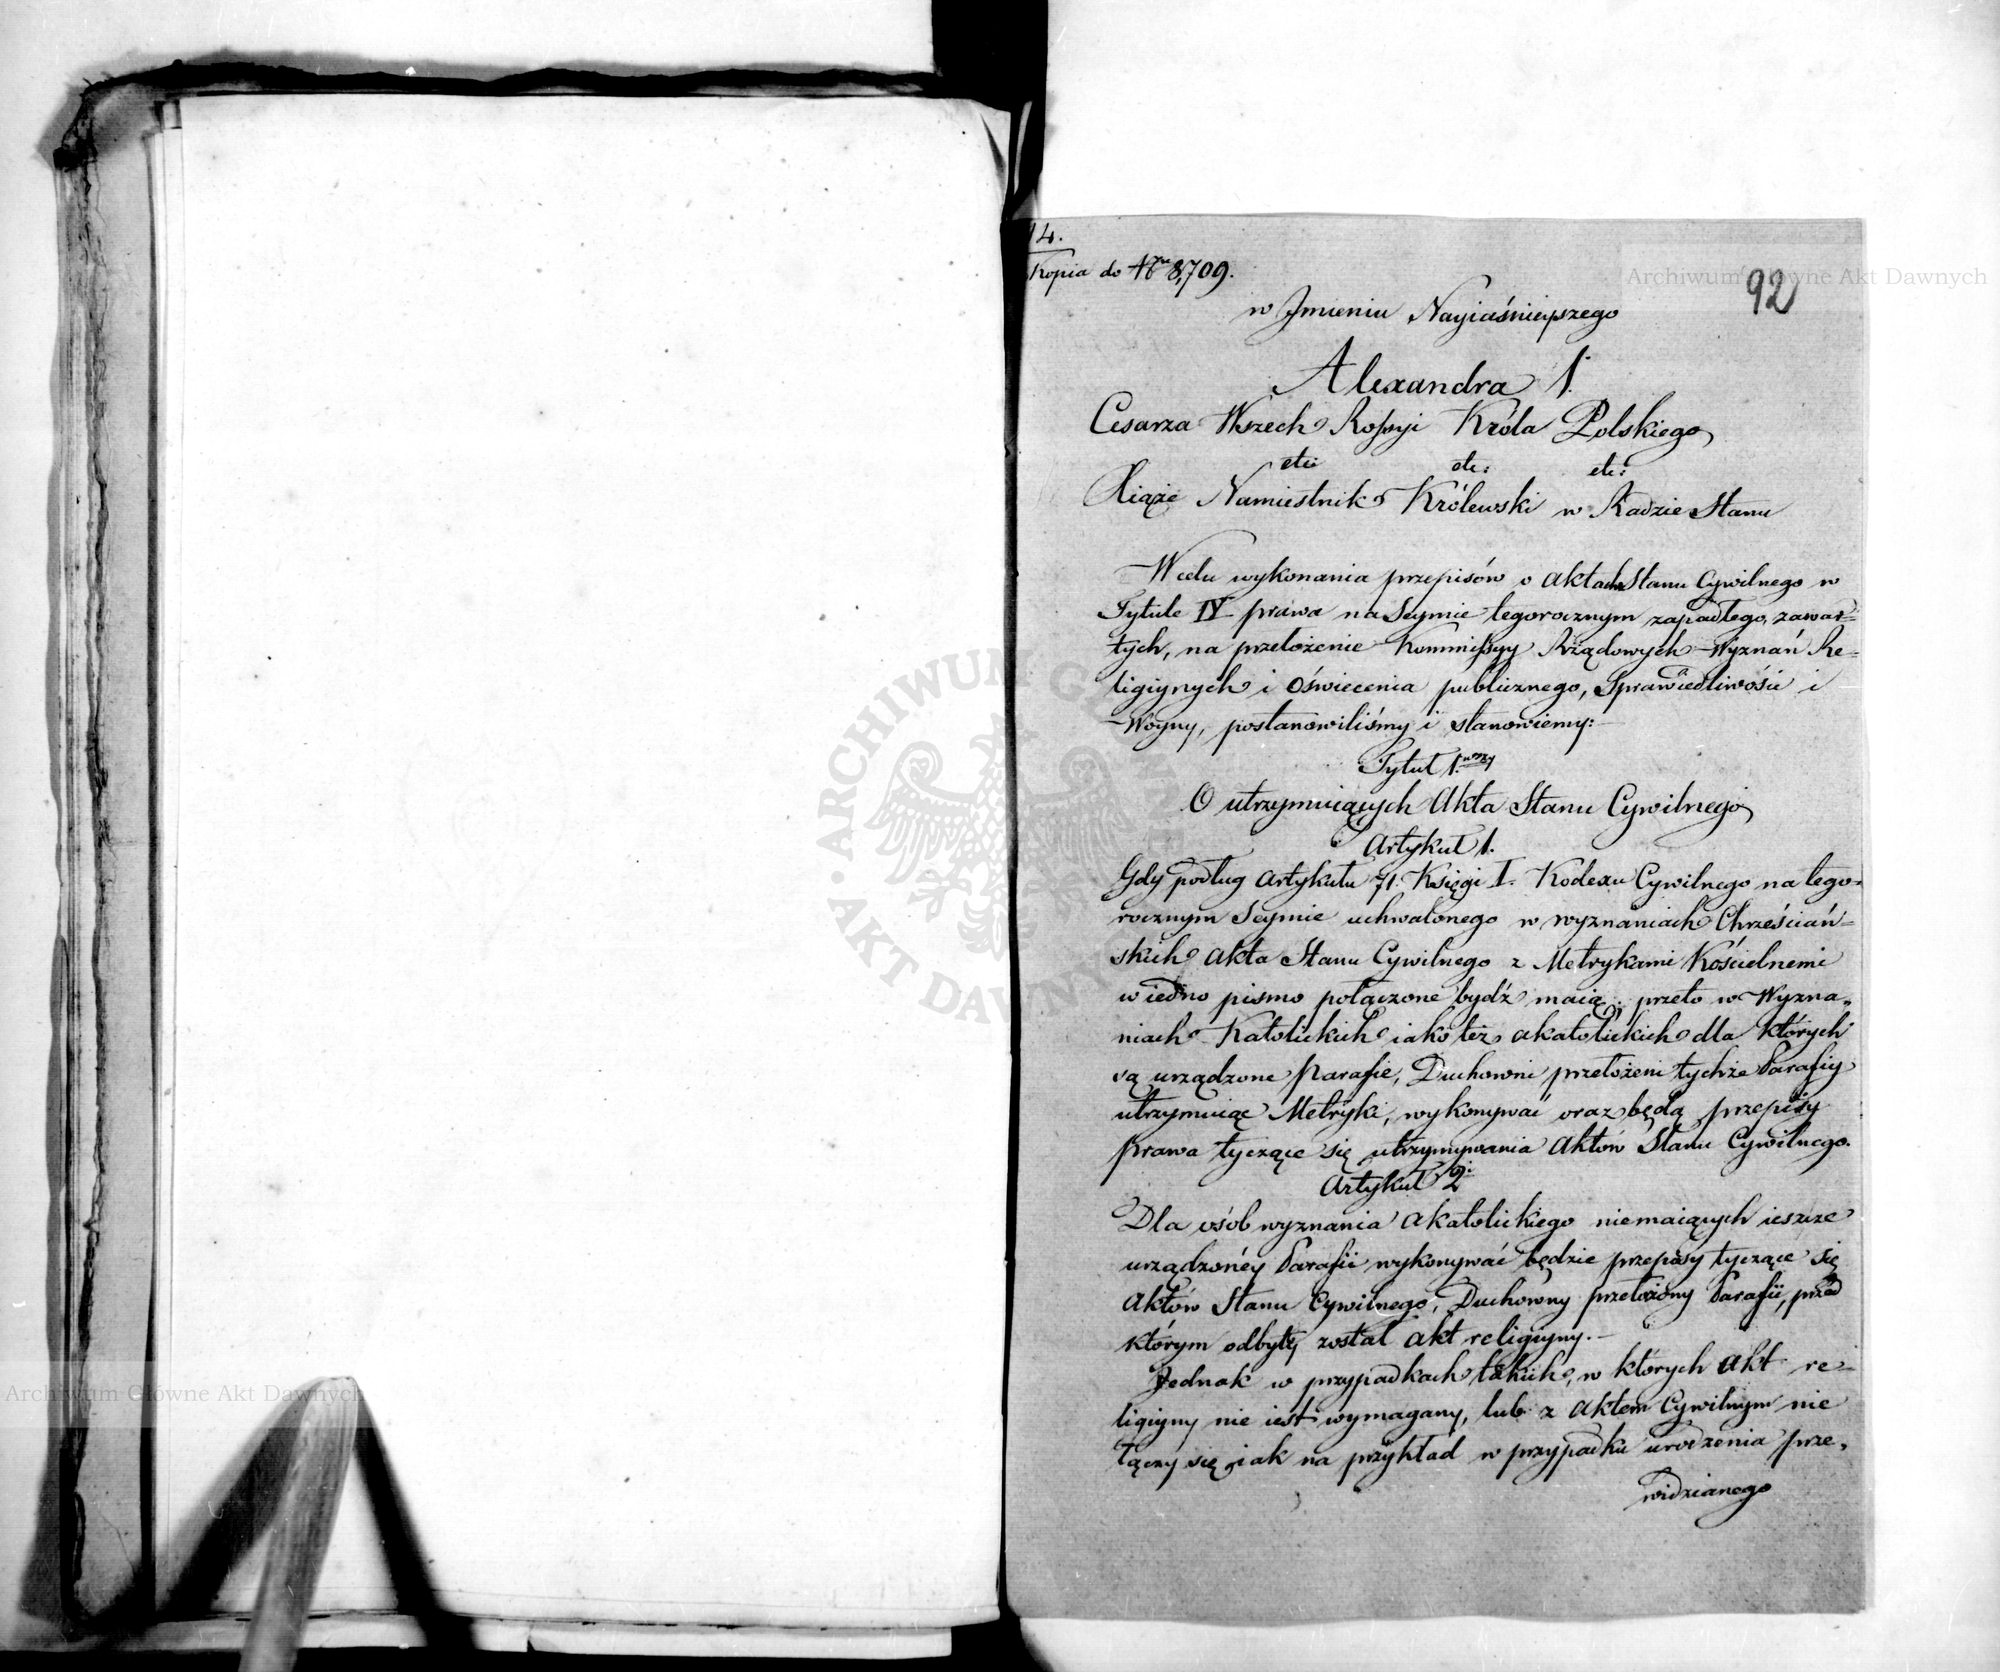 14.
Kopia do Nru 8,709.
92
w Jmieniu Nayiaśnieyszego
Alexandra I.
Cesarza Wszech Rossyi Króla Polskiego
etc: etc: etc:
Xiąże Namiestnik Królewski w Radzie Stanu
W celu wykonania przepisów o aktach Stanu Cywilnego w
Tytule IV prawa na Seymie tegorocznym zapadłego, zawar=
tych, na przełożenie Kommissyy Rządowych Wyznań Re=
ligiynych i Oświecenia publicznego, Sprawiedliwości i
Woyny, postanowiliśmy i stanowiemy:
Tytuł 1.wszy
O utrzymuiących Akta Stanu Cywilnego
Artykuł 1.
Gdy podług Artykułu 71. Księgi I. Kodexu Cywilnego na tego=
rocznym Seymie uchwalonego w wyznaniach Chrześciań=
skich akta Stanu Cywilnego z Metrykami Kościelnemi
w iedno pismo połączone bydź maią; przeto w Wyzna=
niach Katolickich iako też akatolickich dla których
są urządzone Parafie, Duchowni przełożeni tychże Parafiy
utrzymuiąc Metryki, wykonywać oraz będą przepisy
prawa tyczące się utrzymywania Aktów Stanu Cywilnego.
Artykuł 2.
Dla osób wyznania akatolickiego niemaiących ieszcze
urządzonéy Parafii wykonywać będzie przepisy tyczące się
Aktów Stanu Cywilnego, Duchowny przełożony Parafii, przed
którym odbyty został akt religiyny.
Jednak w przypadkach takich, w których akt re=
ligiyny nie iest wymagany, lub z aktem Cywilnym nie
łączy się iak na przykład w przypadku urodzenia prze=
widzianego
Archiwum Główne Akt Dawnych
ARCHIWUM GŁÓWNE AKT DAWNYCH
Archiwum Główne Akt Dawnych